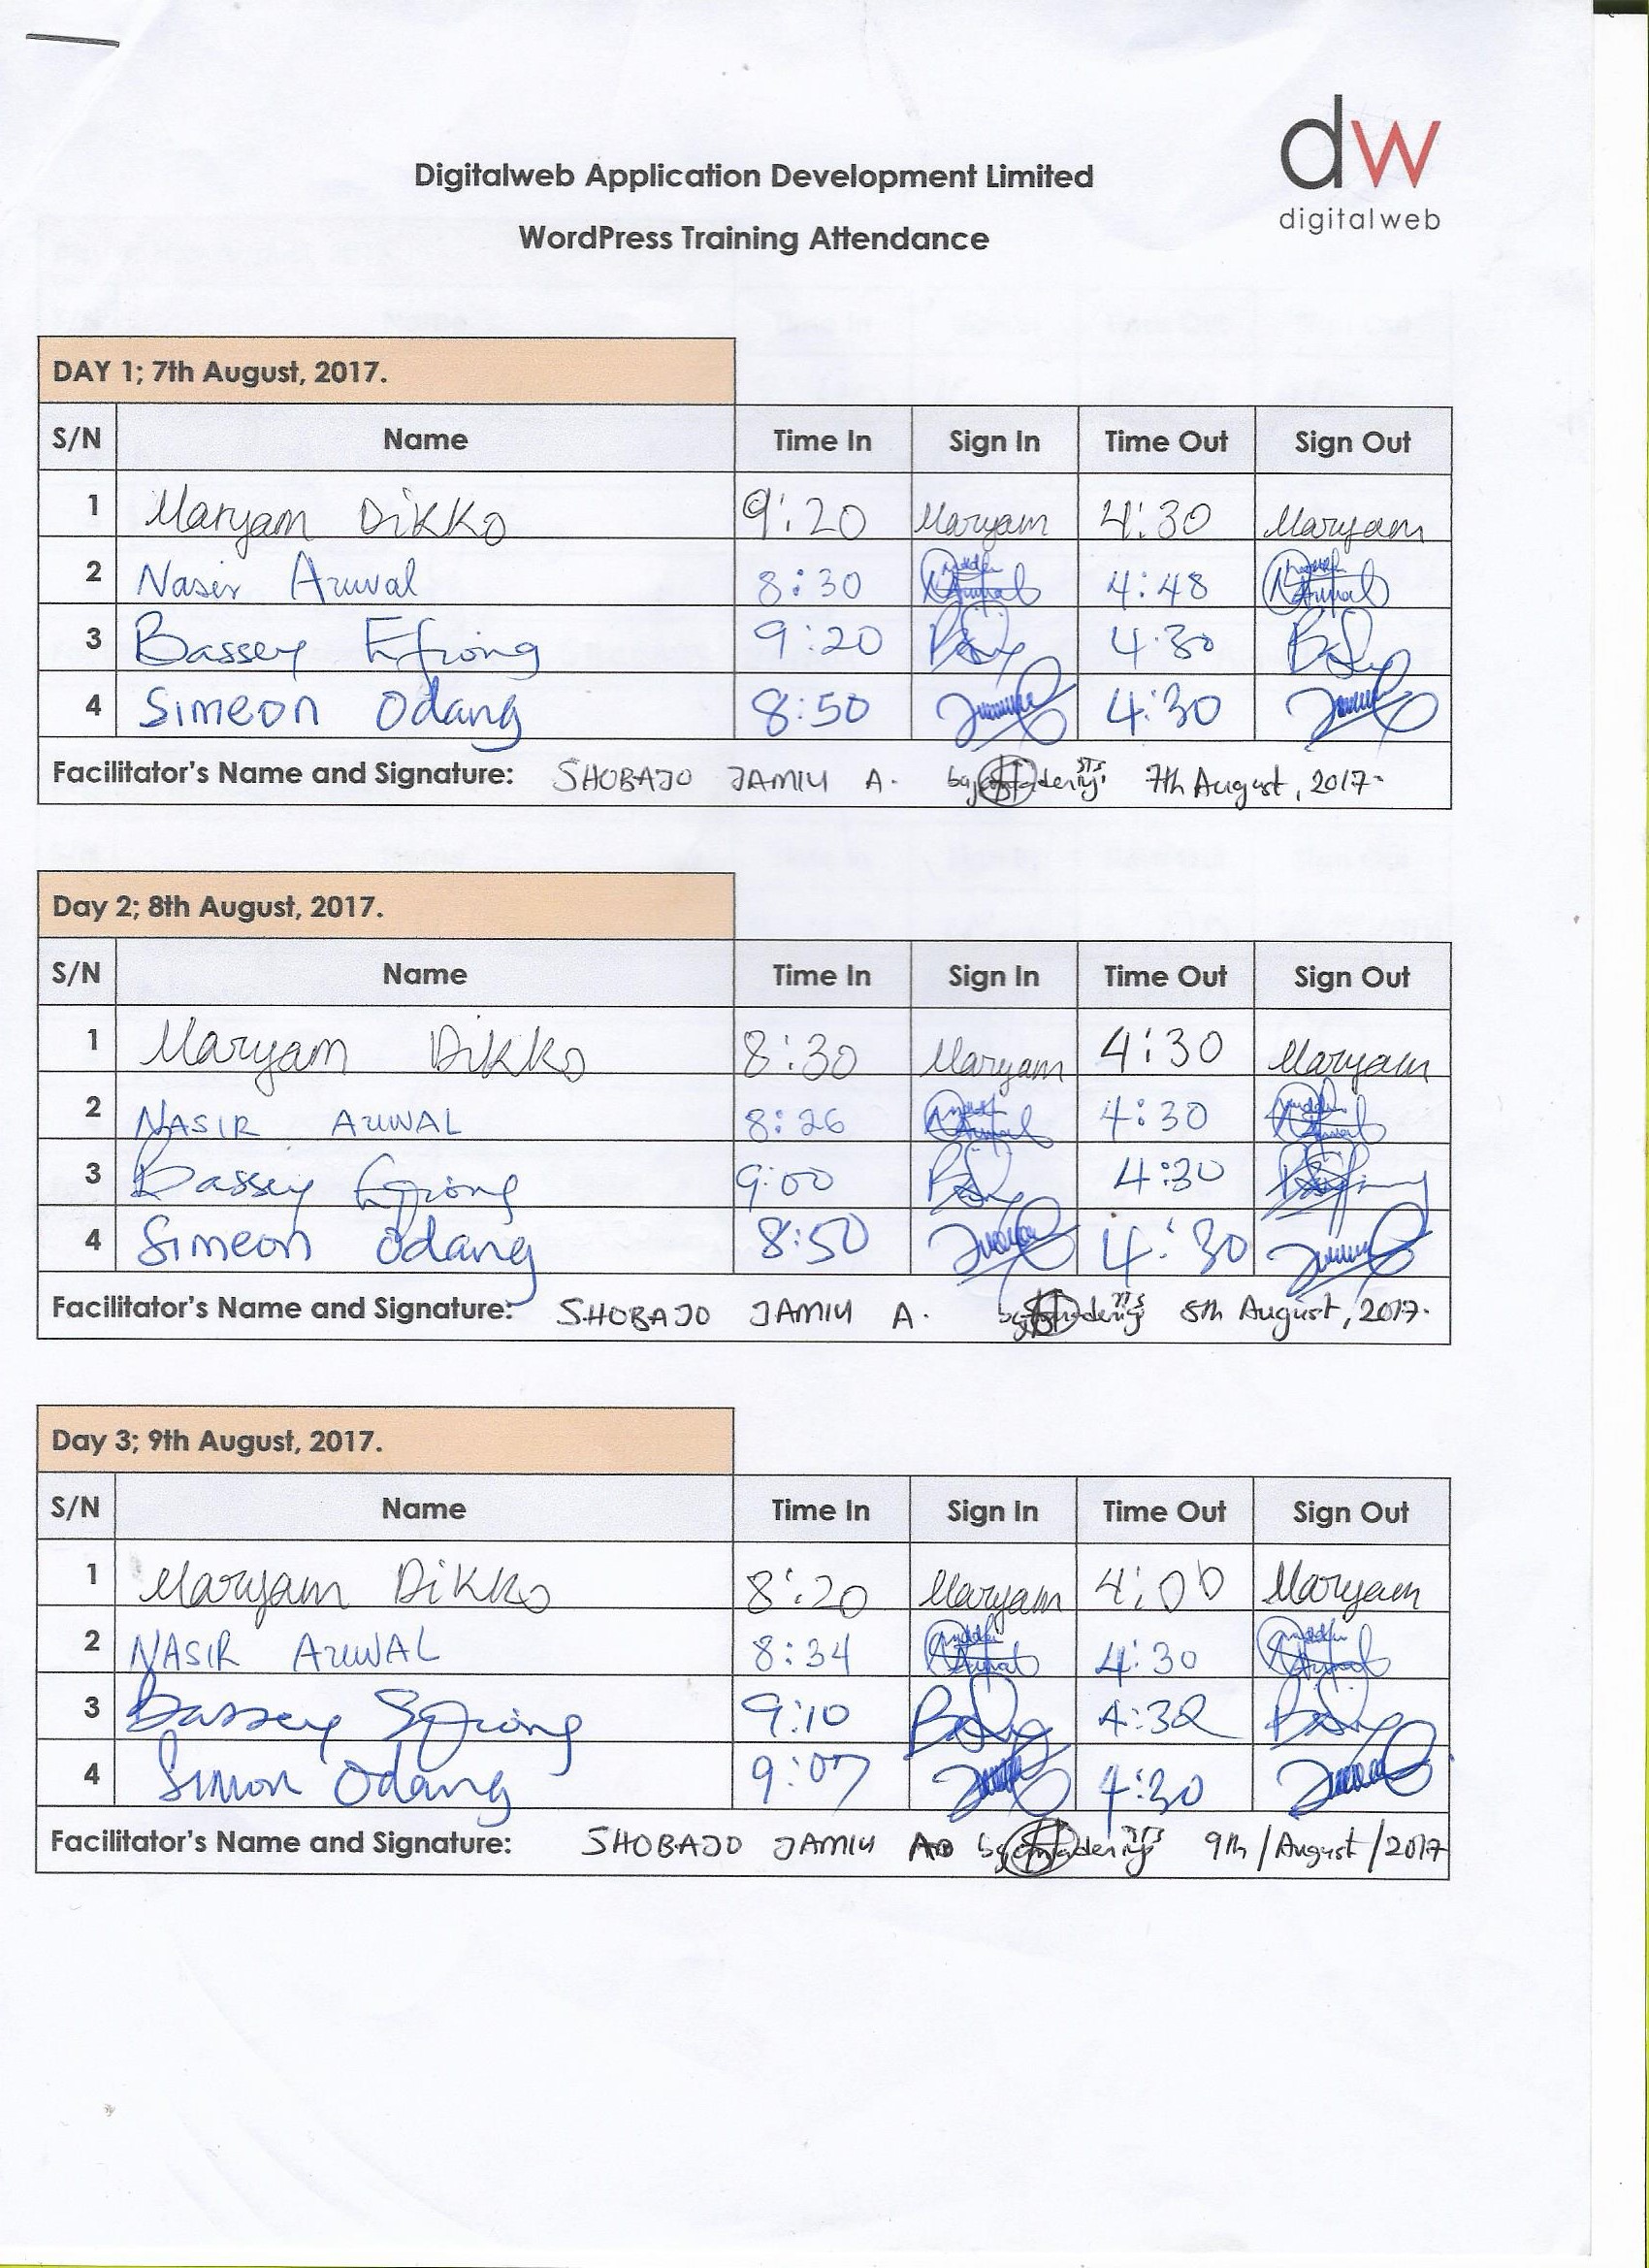 dw
digitalweb
Digitalweb Application Development Limited
WordPress Training Attendance
DAY 1; 7th August, 2017.
S/N Name Time In Sign In Time Out Sign Out
1 Maryam Dikko 9:20 Maryam 4:30 Maryam
2 Nasir Auwal 8:30 4:48
3 Bassey Efiong 9:20 4:30
4 Simeon Odang 8:50 4:30
Facilitator's Name and Signature: SHOBAJO JAMIU A. 7th August, 2017.
Day 2; 8th August, 2017.
S/N Name Time In Sign In Time Out Sign Out
1 Maryam Dikko 8:30 Maryam 4:30 Maryam
2 NASIR AUWAL 8:26 4:30
3 Bassey Efiong 9:00 4:30
4 Simeon Odang 8:50 4:30
Facilitator's Name and Signature: SHOBAJO JAMIU A. 8th August, 2017.
Day 3; 9th August, 2017.
S/N Name Time In Sign In Time Out Sign Out
1 Maryam Dikko 8:20 Maryam 4:00 Maryam
2 NASIR AUWAL 8:34 4:30
3 Bassey Efiong 9:10 4:32
4 Simon Odang 9:07 4:30
Facilitator's Name and Signature: SHOBAJO JAMIU 9th/August/2017